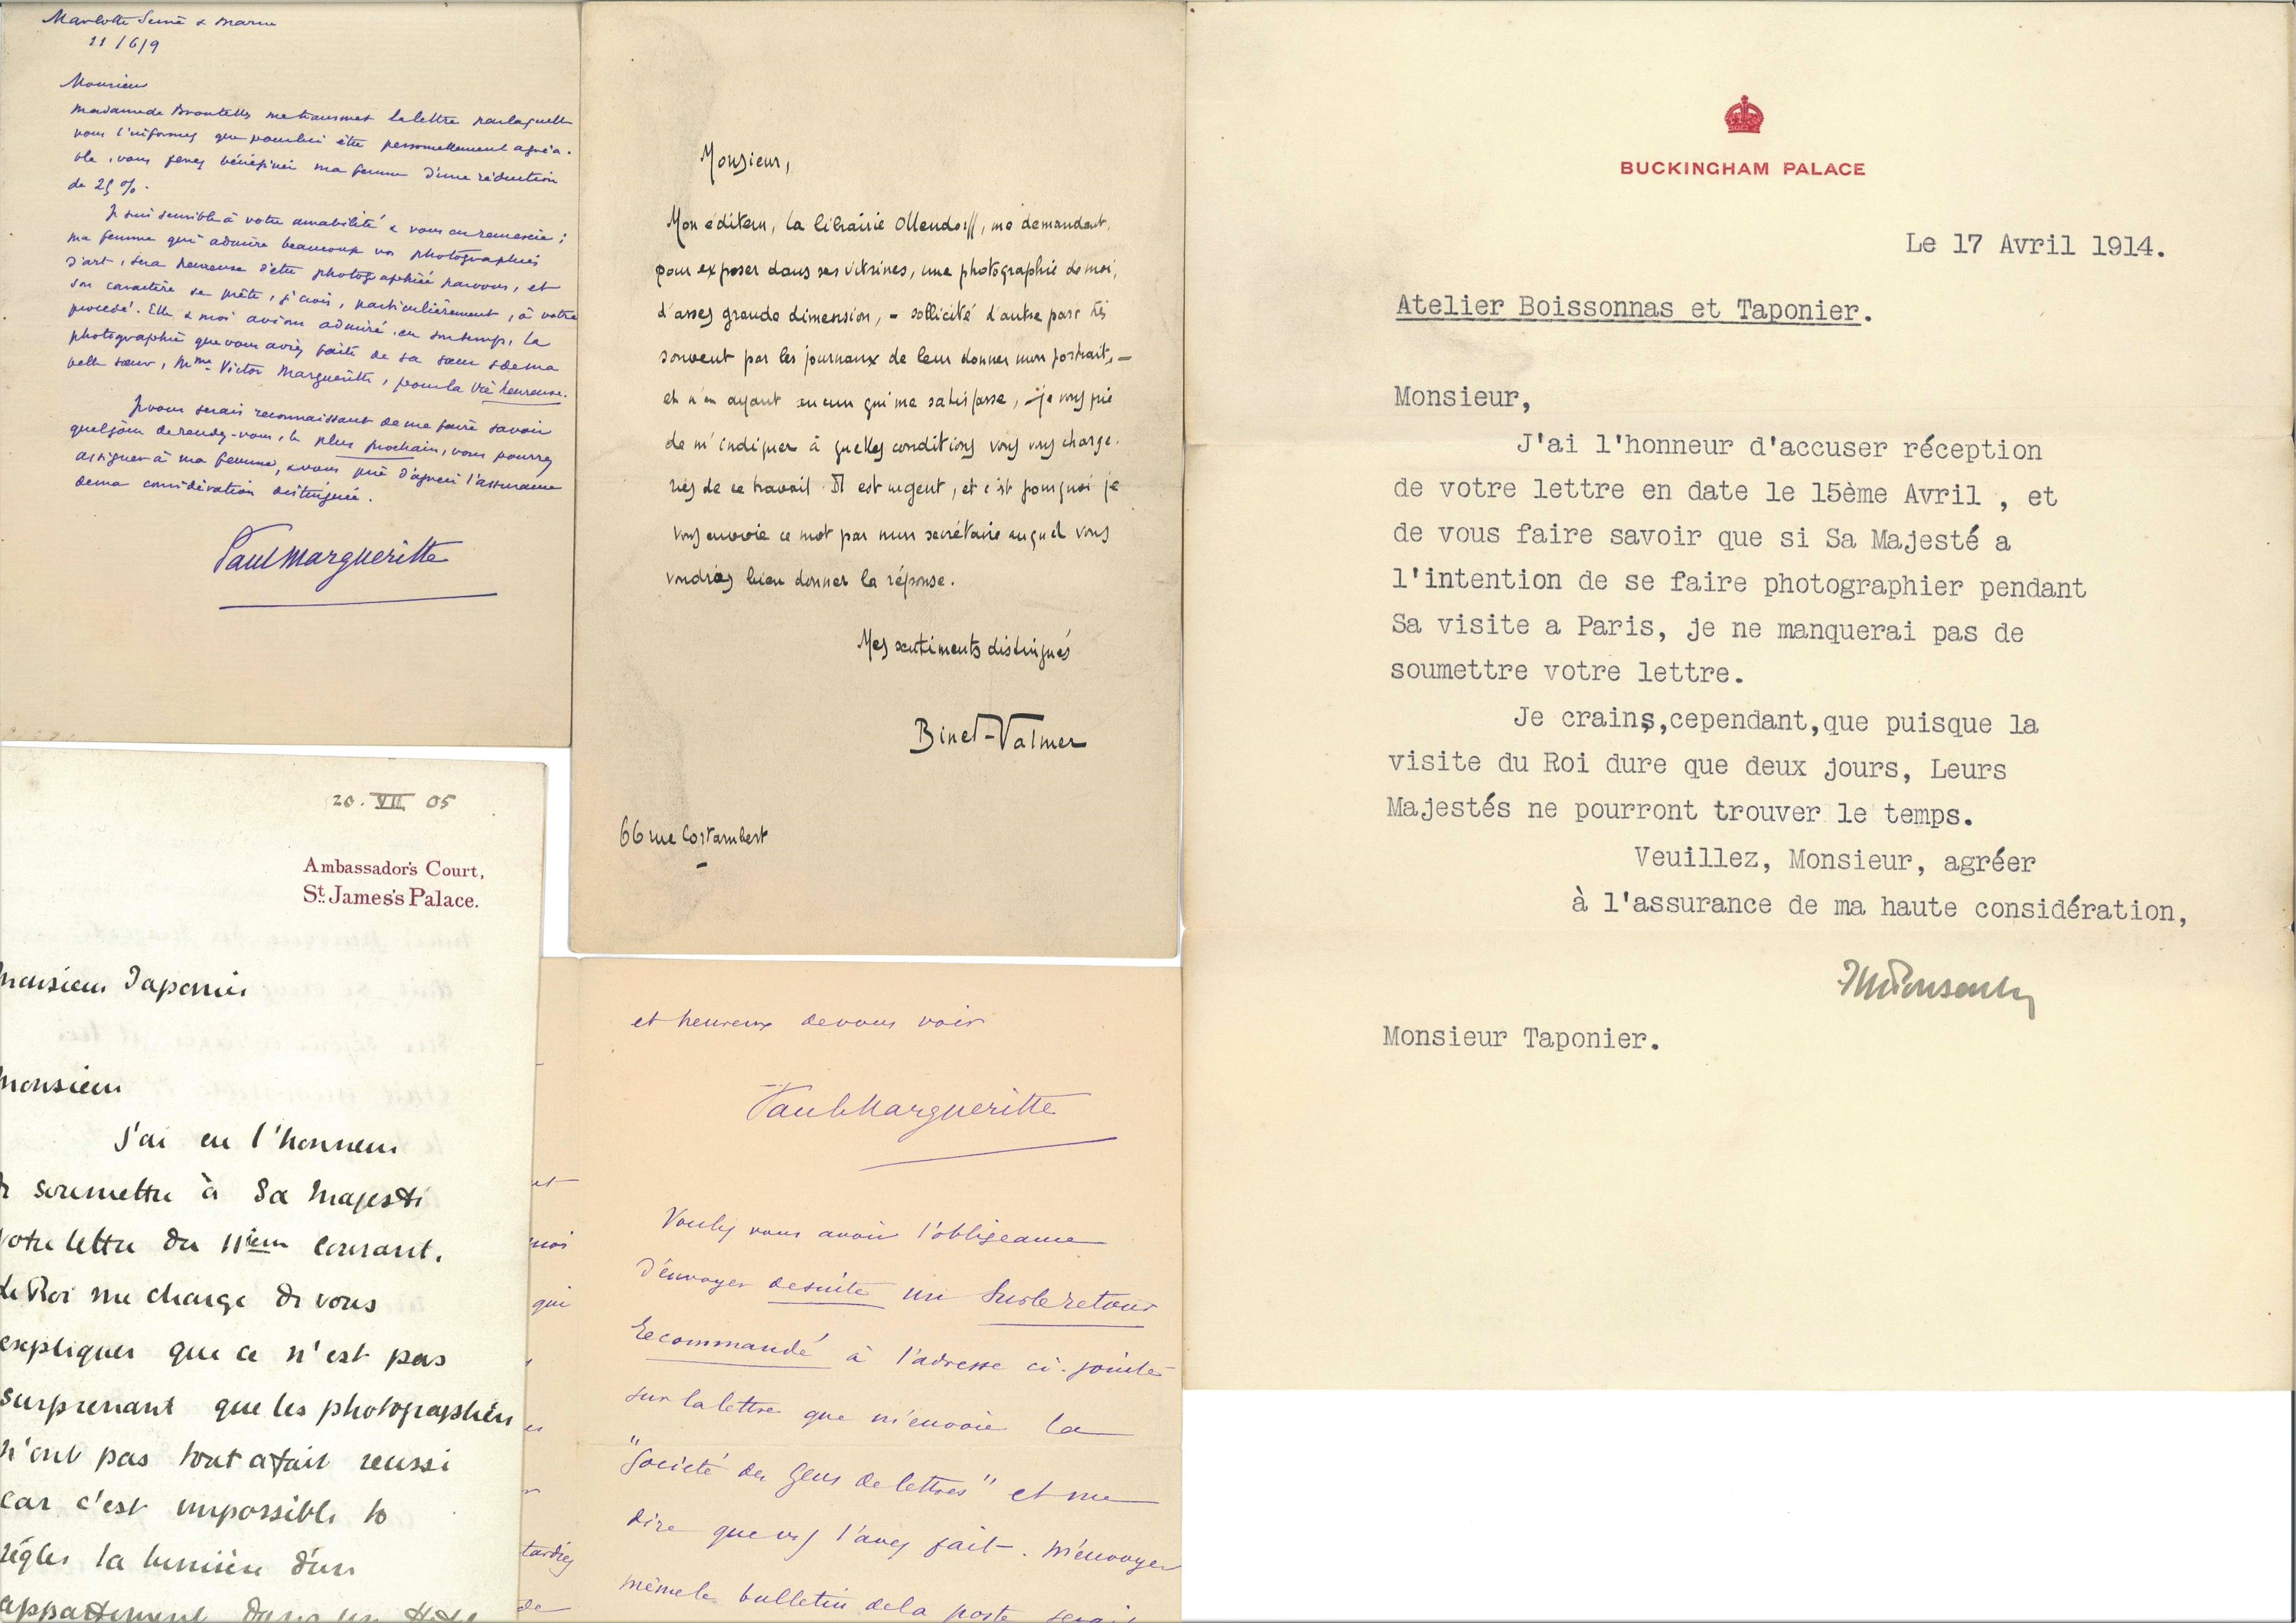 Marlotte Seine & Marne
11/6/9
Monsieur
Madame de Broutelles me transmet la lettre par laquelle
vous l'informez que pour lui être personnellement agréa-
ble, vous ferez bénéficier ma femme d'une réduction
de 25 %.
Je suis sensible à votre amabilité & vous en remercie ;
ma femme qui admire beaucoup vos photographies
d'art, sera heureuse d'être photographiée par vous, et
son caractère se prête, je crois, particulièrement, à votre
procédé. Elle & moi avions admiré en son temps, la
photographie que vous aviez faite de sa sœur & de ma
belle sœur, Mme Victor Margueritte, pour la Vie heureuse.
Je vous serais reconnaissant de me faire savoir
quel jour de rendez-vous, le plus prochain, vous pourrez
assigner à ma femme, & vous prie d'agréer l'assurance
de ma considération distinguée.
Paul Margueritte
Monsieur,
Mon éditeur, la librairie Ollendorff, me demandant,
pour exposer dans ses vitrines, une photographie de moi,
d'assez grande dimension, – sollicité d'autre part très
souvent par les journaux de leur donner mon portrait, –
et n'en ayant aucun qui me satisfasse, – je vous prie
de m'indiquer à quelles conditions vous vous charge-
riez de ce travail. Il est urgent, et c'est pourquoi je
vous envoie ce mot par mon secrétaire auquel vous
voudrez bien donner la réponse.
Mes sentiments distingués
Binet-Valmer
66 rue Costambert
BUCKINGHAM PALACE
Le 17 Avril 1914.
Atelier Boissonnas et Taponier.
Monsieur,
J'ai l'honneur d'accuser réception
de votre lettre en date le 15ème Avril , et
de vous faire savoir que si Sa Majesté a
l'intention de se faire photographier pendant
Sa visite a Paris, je ne manquerai pas de
soumettre votre lettre.
Je crains,cependant,que puisque la
visite du Roi dure que deux jours, Leurs
Majestés ne pourront trouver le temps.
Veuillez, Monsieur, agréer
à l'assurance de ma haute considération,
Monsieur Taponier.
20. VII 05
Ambassador's Court,
St. James's Palace.
Monsieur Taponier
Monsieur
J'ai eu l'honneur
de soumettre à Sa Majesté
votre lettre du 11ième courant.
Le Roi me charge de vous
expliquer que ce n'est pas
surprenant que les photographies
n'ont pas tout a fait reussi
car c'est impossible to
régler la lumière d'un
appartement dans un Hotel
et heureux de vous voir
Paul Margueritte
Voulez vous avoir l'obligeance
d'envoyer de suite un Sur le retour
Recommandé à l'adresse ci-jointe
sur la lettre que m'envoie la
"Société des Gens de lettres" et me
dire que vs l'avez fait. M'envoyer
même le bulletin de la poste serait
moi
qui
tardiez
de